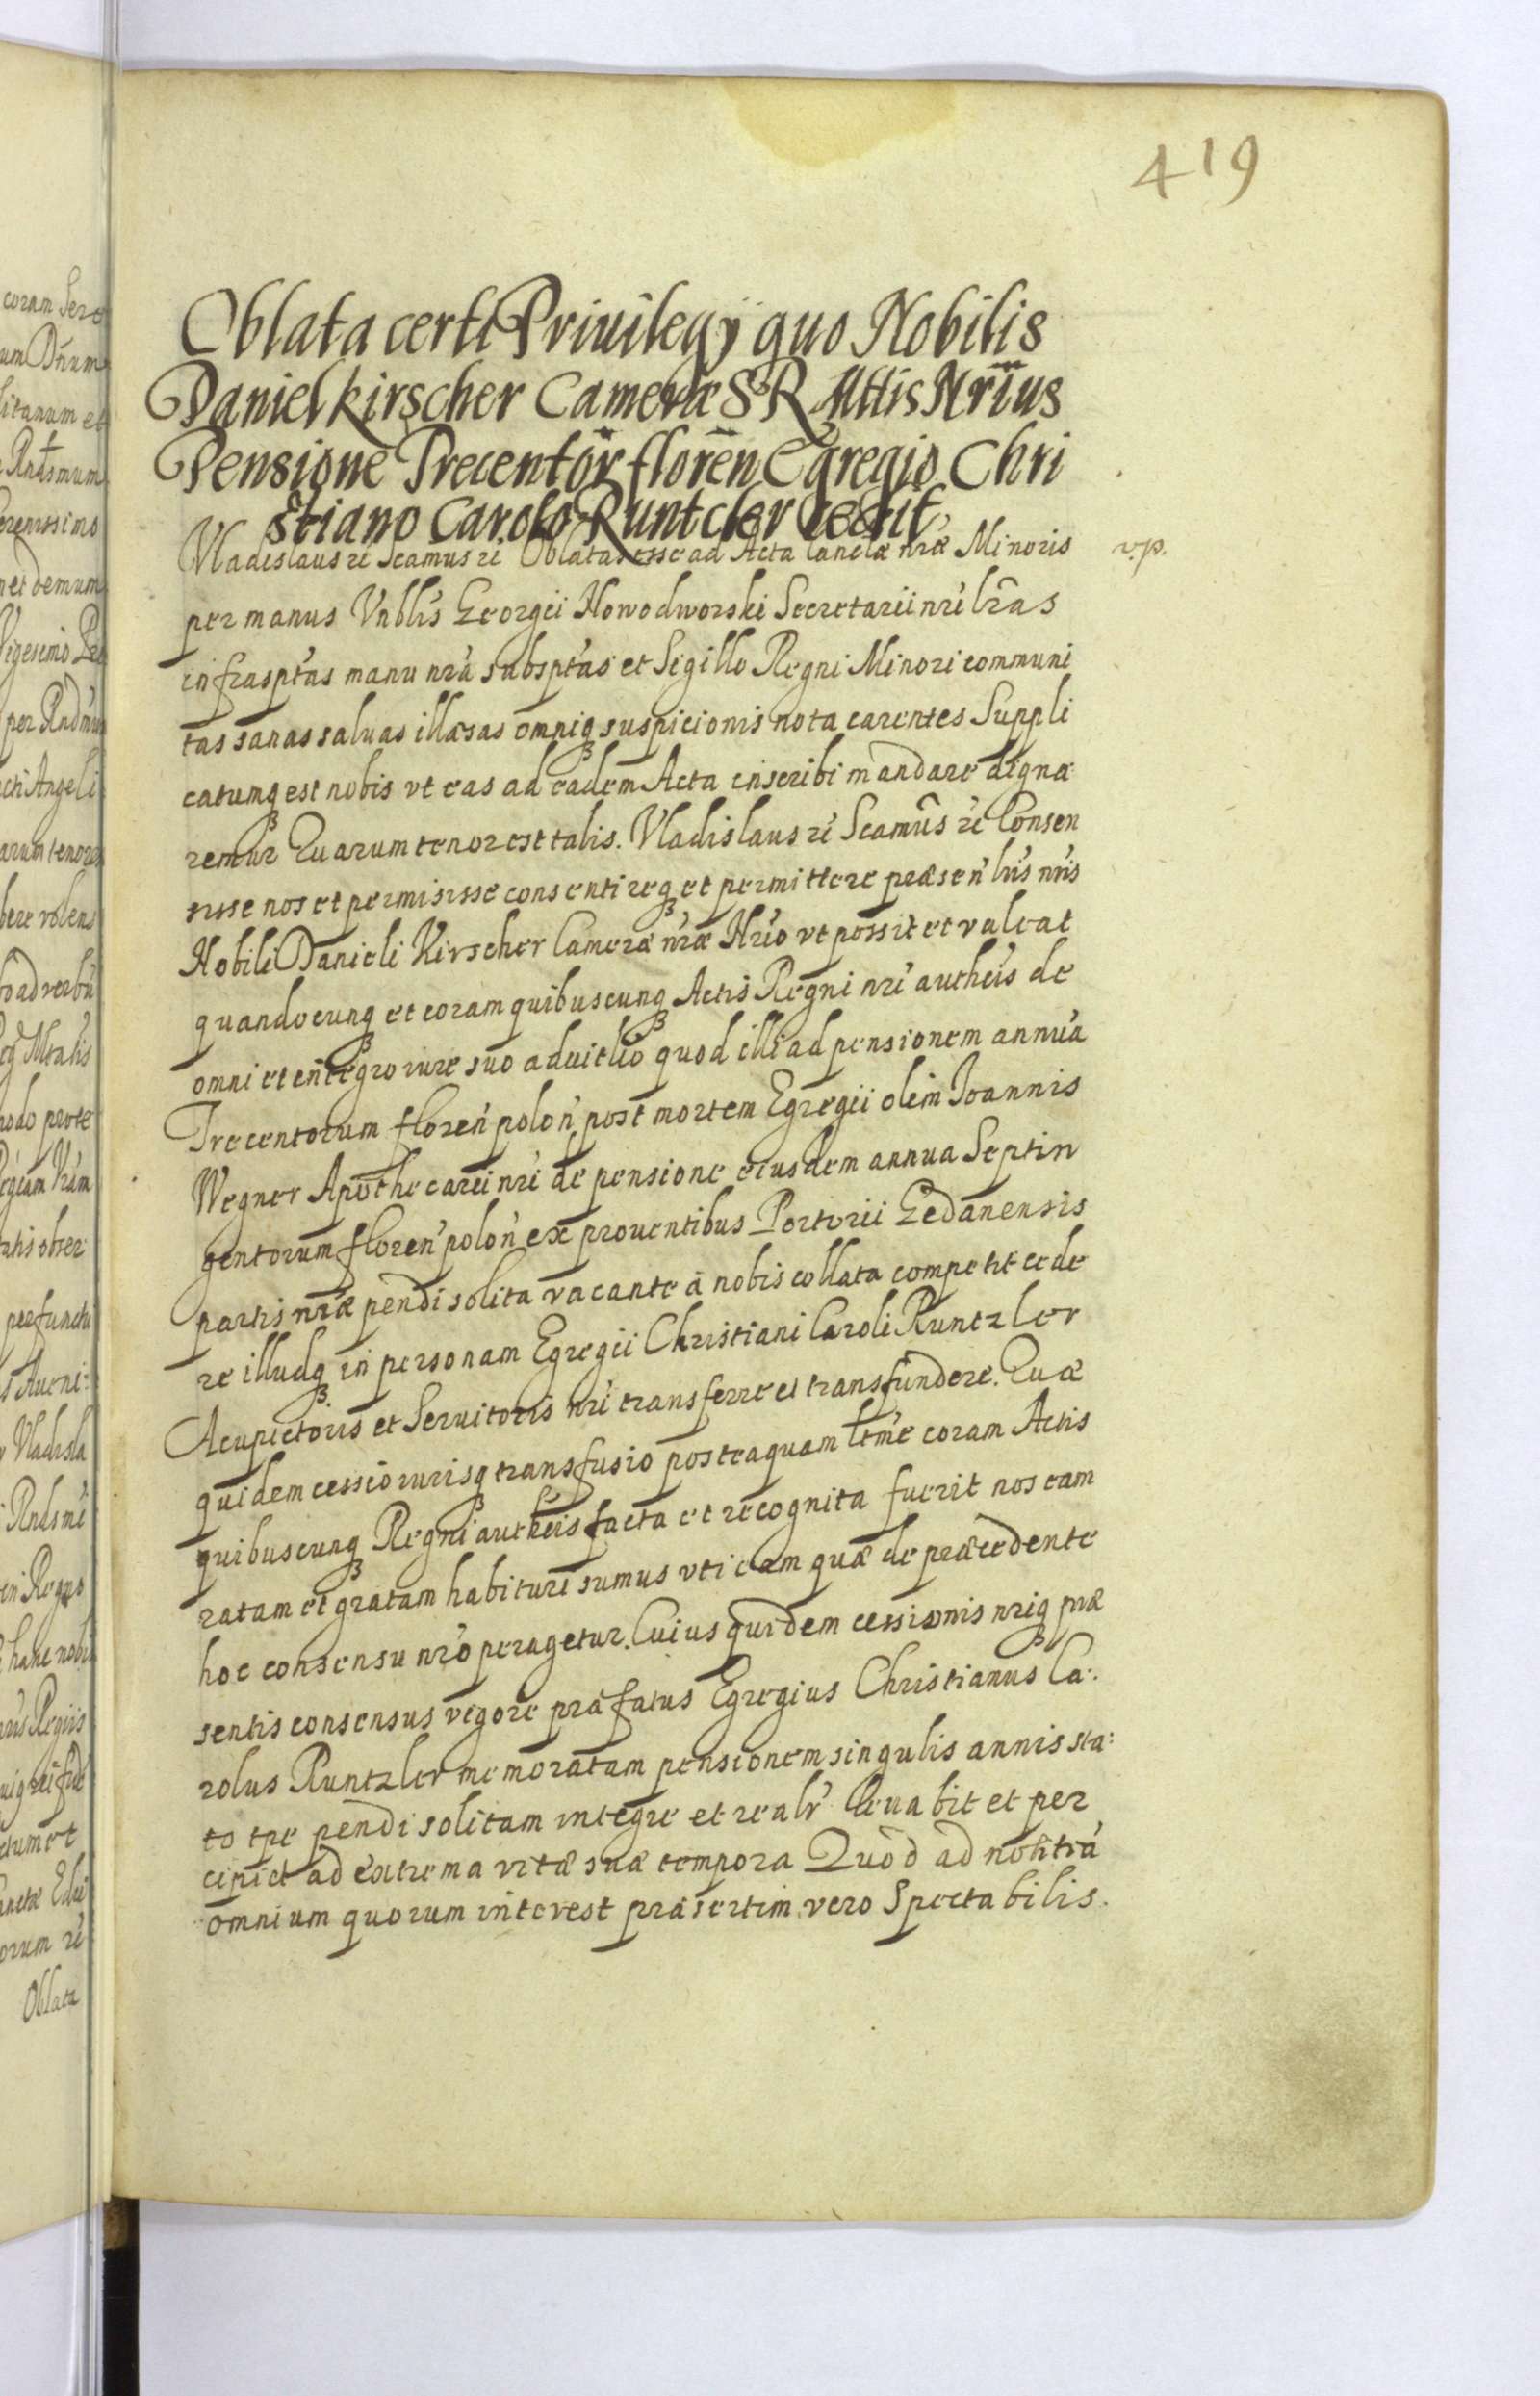 419
Oblata certi Priuilegÿ quo Nobilis
Daniel Kirscher Cameræ S R Mttis Nrius
Pensione Trecentor̃ floren̄ Egregio Chri
stiano Carolo Runtcler cessit
Vladislaus rẽ Scamus rẽ Oblatas esse ad Acta Canclæ nræ Minoris v.p.
per manus Vnblis Georgii Nowodworski Secretarii nri lr̃as
infrasptas manu nrá subsptas et Sigillo Regni Minori communi
tas sanas saluas illæsas omniq suspicionis nota carentes Suppli
catumq est nobis vt eas ad eadem Acta inscribi mandare digna
remur Quarum tenor est talis. Vladislaus rẽ Scamus̃ rẽ Consen
sisse nos et permisisse consentireq et permittere præsen̄ lris nris
Nobili Danieli Kirscher Cameræ nræ Nrio vt possit et valeat
quandocunq et coram quibuscunq Actis Regni nri autheis de
omni et integro iure suo aduitlio quod illi ad pensionem annuá
Trecentorum floren̄ polon̄ post mortem Egregii olim Ioannis
Wegner Apothecarii nri de pensione eiusdem annua Septin
gentorum floren̄ polon̄ ex prouentibus Portorii Gedanensis
partis nræ pendi solita vacante á nobis collata competit cede
re illudq in personam Egregii Christiani Caroli Runtzler
Acupictoris et Seruitoris nri transferre et transfundere. Quæ
quidem cessio iurisq transfusio posteaquam ltme coram Actis
quibuscunq Regni autheis facta et recognita fuerit nos eam
ratam et gratam habituri sumus vti eam quæ de præcedente
hoc consensu nro peragetur. Cuius quidem cessionis nriq præ
sentis consensus vigore præfatus Egregius Christianus Ca:
rolus Runtzler memoratam pensionem singulis annis sta:
to tpe pendi solitam integre et realr leuabit et per
cipiet ad extrema vitæ suæ tempora Quod ad notitiá
omnium quorum interest præsertim vero Spectabilis.